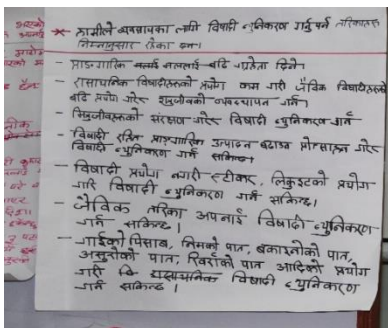 * हामीले व्यवसायका लागी विषादी न्युनिकरण गर्नु पर्ने तरिकाहरु
निम्नानुसार रहेका छन।
- प्राङगारिक मललाई बढि प्राथमिकता दिने।
- रासायनिक विषादीहरुको प्रयोग कम गरी जैविक विषादीहरुको
बढि प्रयोग गरेर शत्रुजीवको व्यवस्थापन गर्ने।
- मित्रजीवहरुको संरक्षण गरेर विषादी न्युनिकरण गर्ने
- विषादी रहित प्राङगारिक उत्पादन बढाउन प्रोत्साहन गरेर
विषादी न्युनिकरण गर्न सकिन्छ।
- विषादी प्रयोग नगरी स्टीकर, लिकुइडको प्रयोग
गरि विषादी न्युनिकरण गर्न सकिन्छ।
- जैविक तरिका अपनाई विषादी न्युनिकरण
गर्न सकिन्छ।
- गाईको पिसाब, निमको पात, बकाइनोको पात,
असुरोको पात, खिर्राको पात आदिको प्रयोग
गरी विषादी न्युनिकरण
गर्न सकिन्छ।